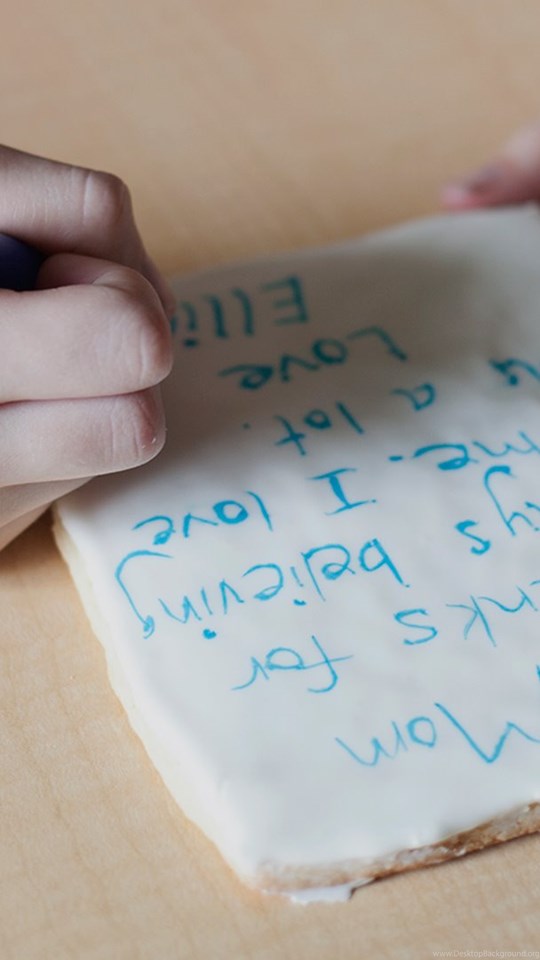 Mom
nks for
ys believing
me. I love
u a lot.
Love
Elli
www.DesktopBackground.org